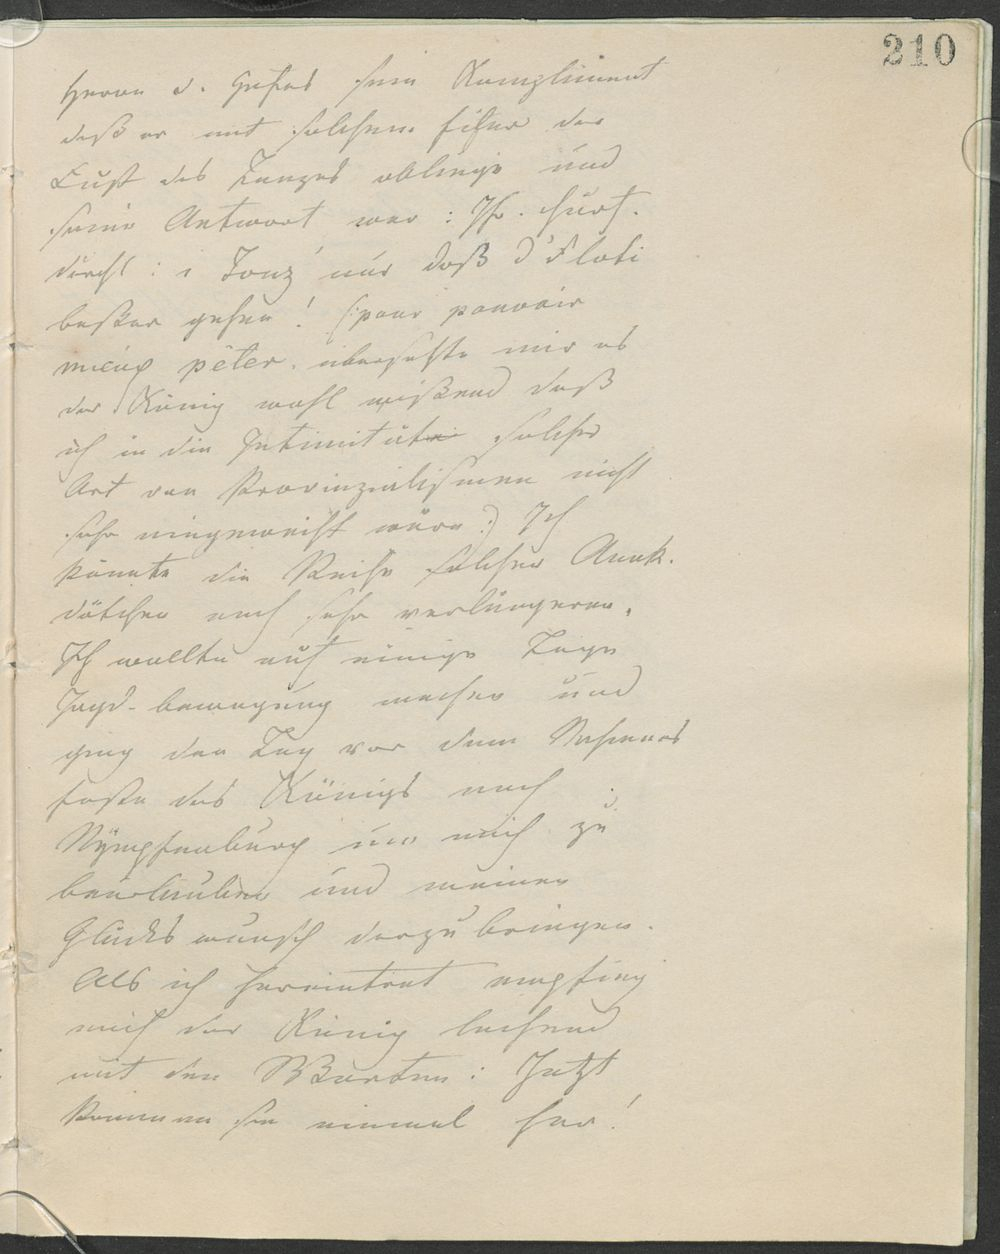 210
Herrn v. Gehas sein Kompliment
daß er mit solchem Eifer der
Lust des Tanzes obliege und
seine Antwort war: Ih. Churf.
durchl: i Tanz nur daß d'Flati
beßer gehen! (:pour pouvoir
mieux pèter. übersetzte mir es
der König wohl wißend daß
ich in die Intimität solcher
Art von Provinzialismen nicht
sehr eingeweiht wäre:) Ich
könnte die Reihe solcher Anek.
dötchen noch sehr verlängeren.
Ich wollte auf einige Tage
Jagd-bewegung machen und
ging den Tag vor dem Nahmens
feste des Königs nach
Nÿmpfenburg um mich zu
beurlauben und meinen
Glückswunsch darzubringen.
Als ich hereintrat empfing
mich der König lachend
mit den Worten: Jetzt
kommen sie einmal her!